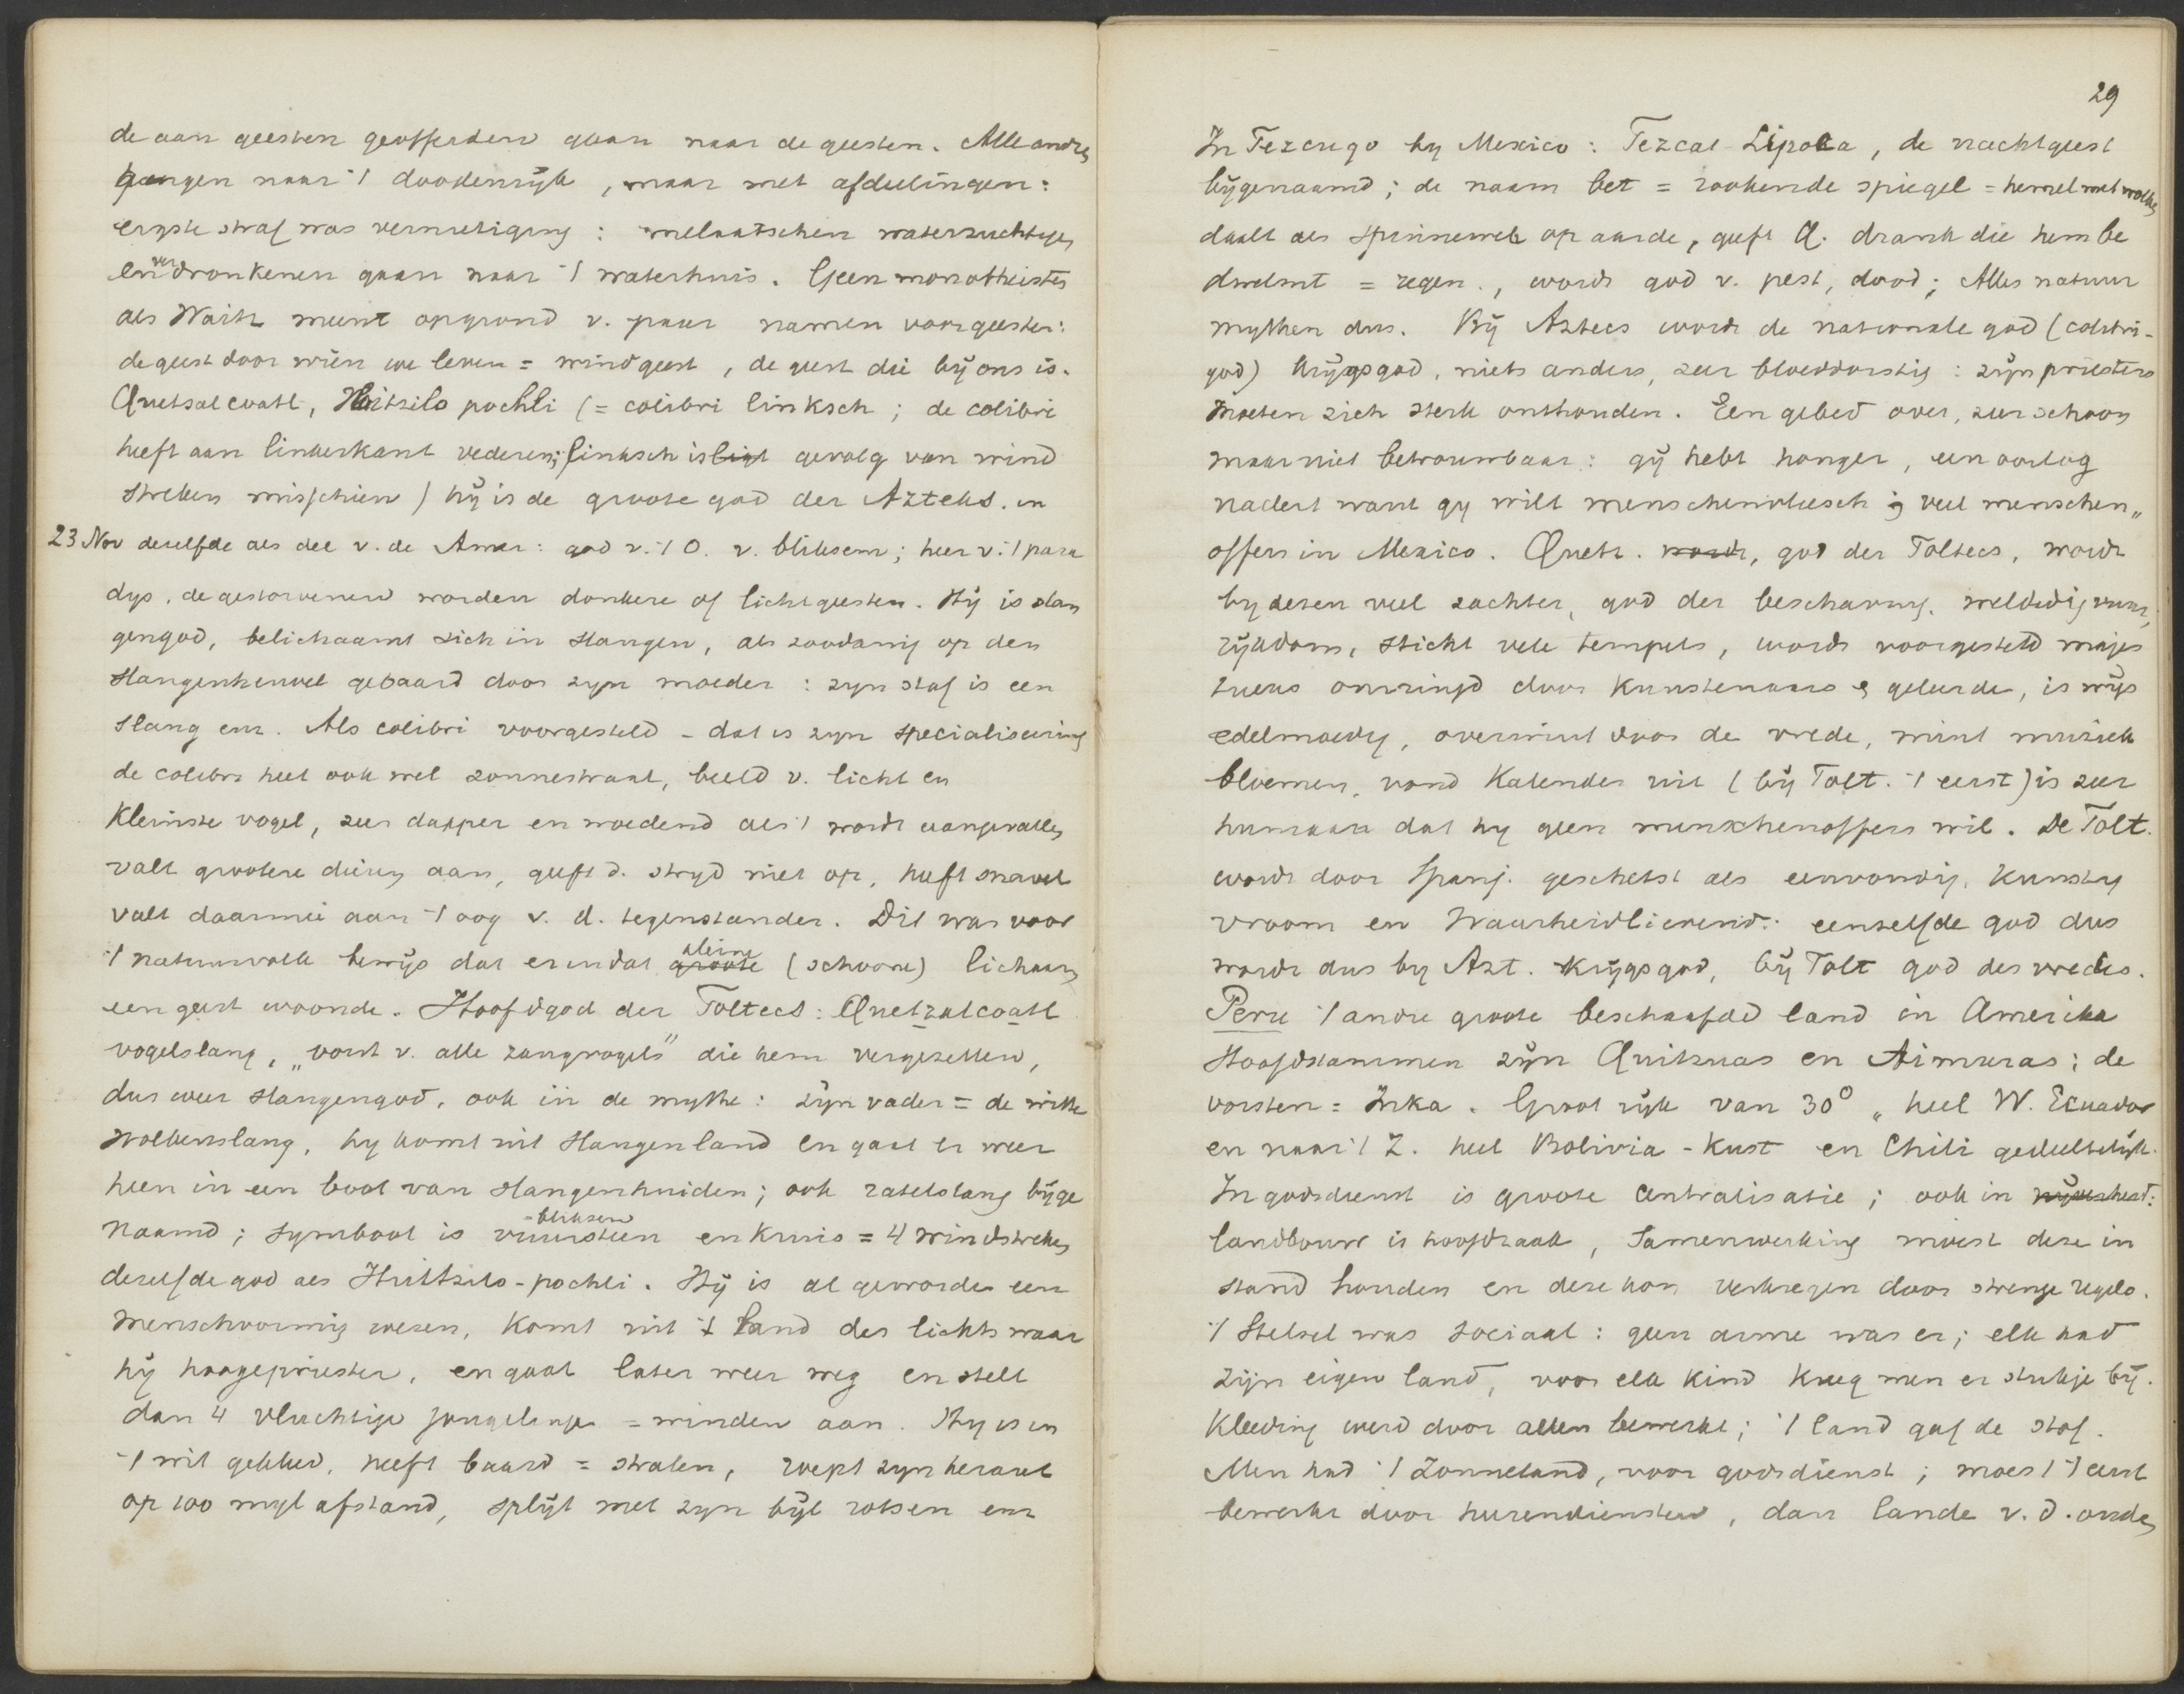 de aan geesten geofferden gaan naar de geesten. Alle andre
gangen naar 't doodenrijk, maar met afdeelingen:
ergste straf was vernietiging: melaatschen waterzuchtige
en verdronkenen gaan naar 't waterhuis. Geen monotheisten
als Waitz meent opgrond v. paar namen voor geesten:
de geest door wien we leven = windgeest, de geest die bij ons is.
Quetsalcoatl, Huitzilo pochli (= colibri linksch; de colibri
heeft aan linkerkant vederen; linksch is gevolg van wind
streken misschien) hij is de groote god der Azteks. in
23 Nov dezelfde als die v. de Amer: god v. 't O. v. bliksem; heer v. 't para
dys, de gestorvenen worden donkere of lichtgeesten. Hij is slan
gengod, belichaamt zich in slangen, als zoodanig op den
slangenheuvel gebaard door zyn moeder: zyn staf is een
slang enz. Als colibri voorgesteld - dat is zyn specialiseering
de colibri heet ook wel zonnestraal, beeld v. licht en
kleinste vogel, zeer dapper en woedend als 't wordt aangevallen
valt grootere dieren aan, geeft d. stryd niet op, heeft snavel
valt daarmee aan 't oog v. d. tegenstander. Dit was voor
't natuurvolk bewijs dat er in dat groote kleine (schoone) lichaam
een geest woonde. Hoofdgod der Toltecs: Quetzalcoatl
vogelslang, "vorst v. alle zangvogels" die hem vergezellen,
dus weer slangengod, ook in de mythe: zijn vader = de witte
Wolkenslang, hy komt uit slangenland en gaat er weer
heen in een boot van slangenhuiden; ook ratelslang bijge
naamd; symbool is vuursteen - bliksem en kruis = 4 windstreken
dezelfde god als Huitzilo-pochli. Hij is al geworden een
menschvormig wezen, komt uit 't land des lichts waar
hij hoogepriester, en gaat later weer weg en stelt
dan 4 vluchtige jongelinge = winden aan. Hy is in
't wit gekleed, heeft baard = stralen, roept zyn heraut
op 100 myl afstand, splijt met zyn bijl rotsen enz
29
In Tezcugo by Mexico: Tezcat-Lipoca, de nachtgeest
bijgenaamd; de naam bet = rookende spiegel = hemel met wolken
daalt als spinneweb op aarde, geeft Q. drank die hem be
dwelmt = regen., wordt god v. pest, dood; Alles natuur
mythen dus. Bij Aztecs wordt de nationale god (colibri-
god) krijgsgod, niets anders, zeer bloeddorstig: zijn priesters
moeten zich sterk onthouden. Een gebed over, zeer schoon
maar niet betrouwbaar: gij hebt honger, een oorlog
nadert want gy wilt menschenvleesch; veel menschen„
offers in Mexico. Quetz. wordt, god der Toltecs, wordt
by dezen veel zachter, god der beschaving. weldadig vuur,
rijkdom, sticht vele tempels, wordt voorgesteld majes
tueus omringd door kunstenaars & geleerde, is wijs
edelmoedig, overwint door de vrede, mint muziek
bloemen, vond kalender uit (bij Tolt. 't eerst) is zeer
humaan dat hy geen menschenoffers wil. De Tolt.
wordt door Spanj. geschetst als eenvoudig, kunstig
vroom en waarheidlievend: eenzelfde god dus
wordt dus by Azt. krijgsgod, bij Tolt god des vredes.
Peru 't andre groote beschaafd land in Amerika
Hoofdstammen zijn Quitzuas en Aimaras; de
vorsten = Inka. Groot rijk van 30° „ heel W. Ecuador
en naar 't Z. heel Bolivia-kust en Chili gedeeltelijk.
In godsdienst is groote centralisatie; ook in nijverheid:
landbouw is hoofdzaak, samenwerking moest deze in
stand houden en deze kon verkregen door strenge regels.
't Stelsel was sociaal: geen arme was er; elk had
zijn eigen land, voor elk kind kreeg men er stukje bij.
Kleeding werd door allen bewerkt; 't land gaf de stof.
Men had 't zonneland, voor godsdienst; moest 't eerst
bewerkt door heerendiensten, dan lande v. d. ouden